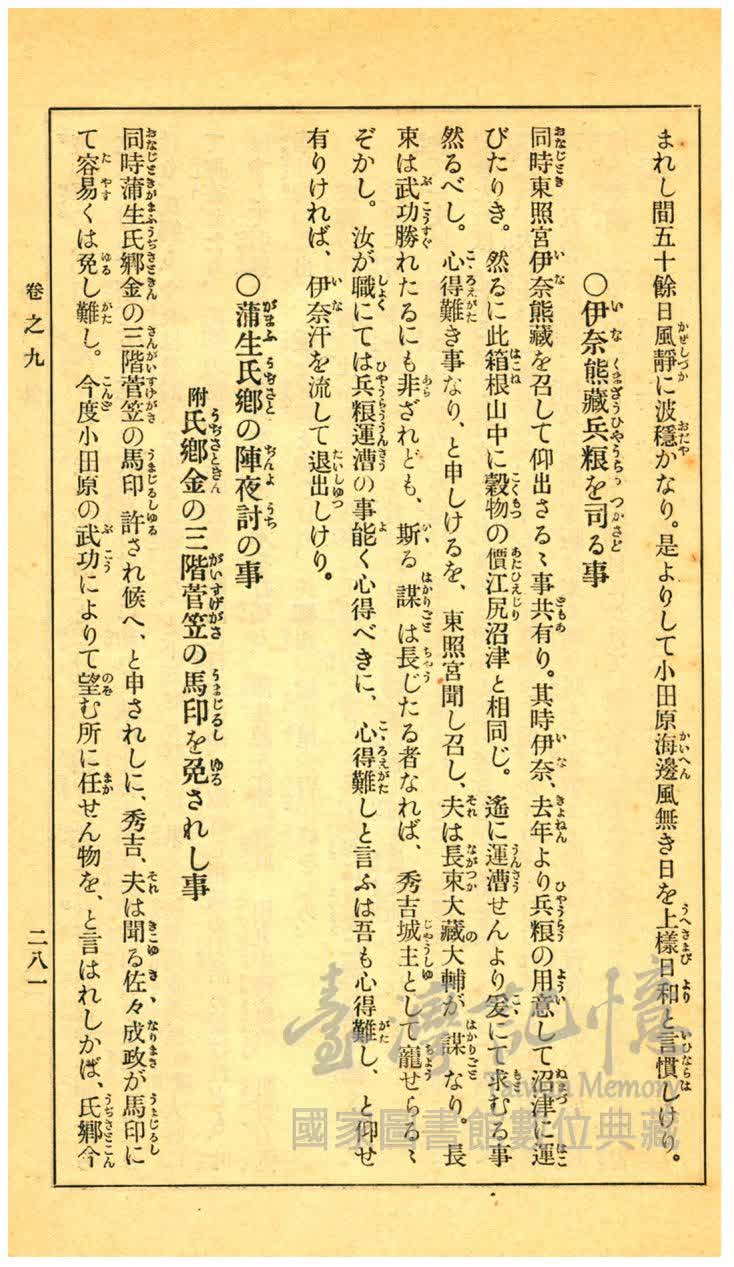 まれし間五十餘日風靜に波穩かなり。是よりして小田原海邊風無き日を上樣日和と言慣しけり。
〇伊奈熊藏兵粮を司る事
同時東照宮伊奈熊藏を召して仰出さるゝ事共有り。其時伊奈、去年より兵粮の用意して沼津に運
びたりき。然るに此箱根山中に穀物の價江尻沼津と相同じ。遙に運漕せんより爰にて求むる事
然るべし。心得難き事なり、と申しけるを、東照宮聞し召し、夫は長束大藏大輔が謀なり。長
束は武功勝れたるにも非ざれども、斯る謀は長じたる者なれば、秀吉城主として寵せらるゝ
ぞかし。汝が職にては兵粮運漕の事能く心得べきに、心得難しと言ふは吾も心得難し、と仰せ
有りければ、伊奈汗を流して退出しけり。
〇蒲生氏鄕の陣夜討の事
附氏鄕金の三階菅笠の馬印を免されし事
同時蒲生氏鄕金の三階菅笠の馬印許され候へ、と申されしに、秀吉、夫は聞る佐々成政が馬印に
て容易くは免し難し。今度小田原の武功によりて望む所に任せん物を、と言はれしかば、氏鄕今
卷之九
二八一
臺灣記憶
Taiwan Memory
國家圖書館數位典藏